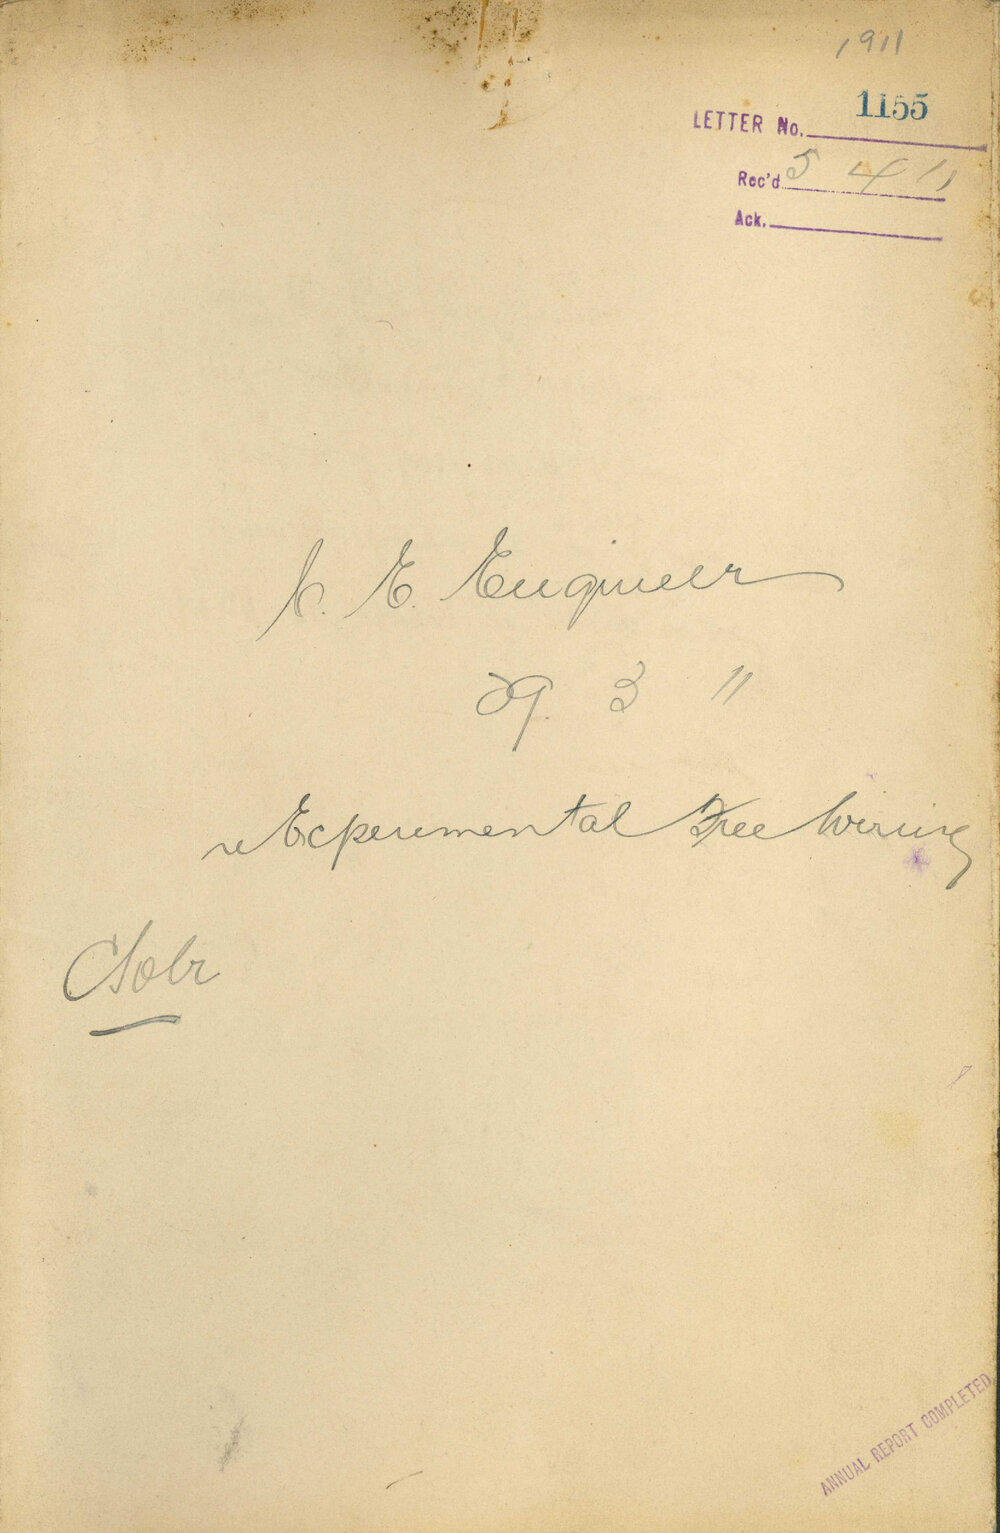 1911
LETTER No. 1155
Rec'd 5 4 11
Ack.
C. E. Engineer
29. 3 11
re Experimental Tree Wiring
ANNUAL REPORT COMPLETED